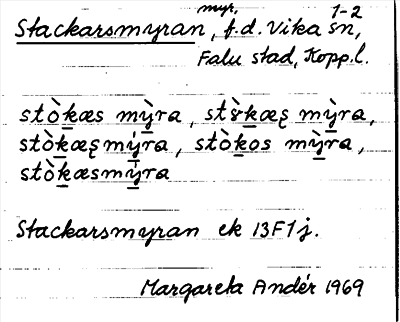 myr, 1-2
Stackarsmyran, f.d. Vika sn,
Falu stad, Kopp.l.
stò̀k̲æs mỳ̲ra, stɤ̀k̲æș mỳ̲ra,
stòk̲æșmý̲ra, stòk̲os mỳ̲ra,
stòk̲æsmý̲ra
Stackarsmyran ek 13F1j.
Margareta Andér 1969